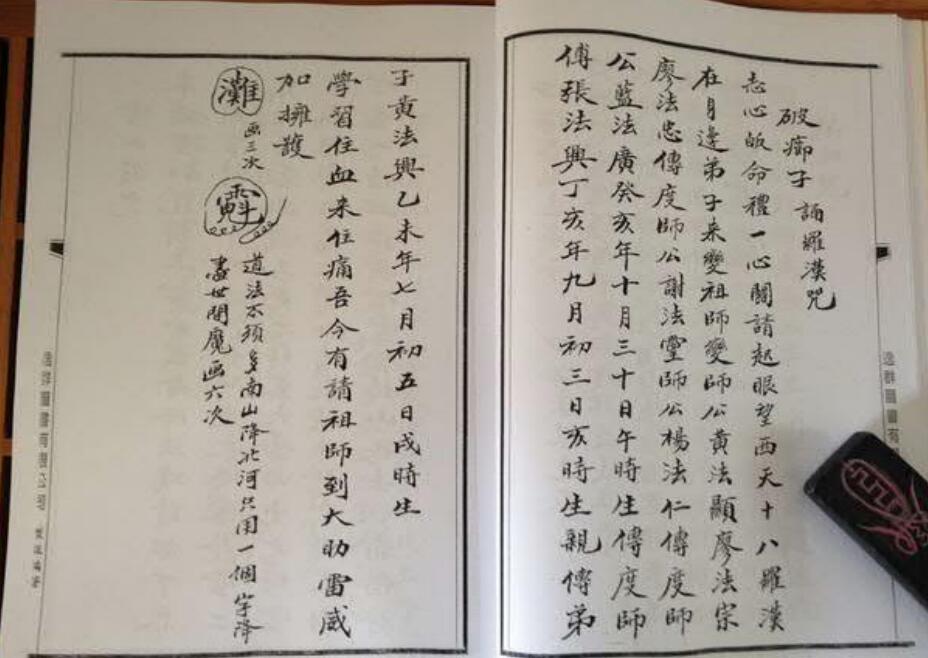 破癤子 誦羅漢咒
志心皈命禮一心關請起眼望西天十八羅漢
在身邊弟子来變祖師變師公黃法顯廖法宗
廖法忠傳度師公謝法靈師公楊法仁傳度師
公藍法廣癸亥年十月三十日午時生傳度師
傅張法興丁亥年九月初三日亥時生親傳弟
子黃法興乙未年七月初五日戌時生
學習住血来住痛吾今有請祖師到大助雷威
加擁護
灘 画三次
道法不須多南山降北河只用一個字降
盡世間魔画六次
逸群圖書有限公司
逸群圖書有